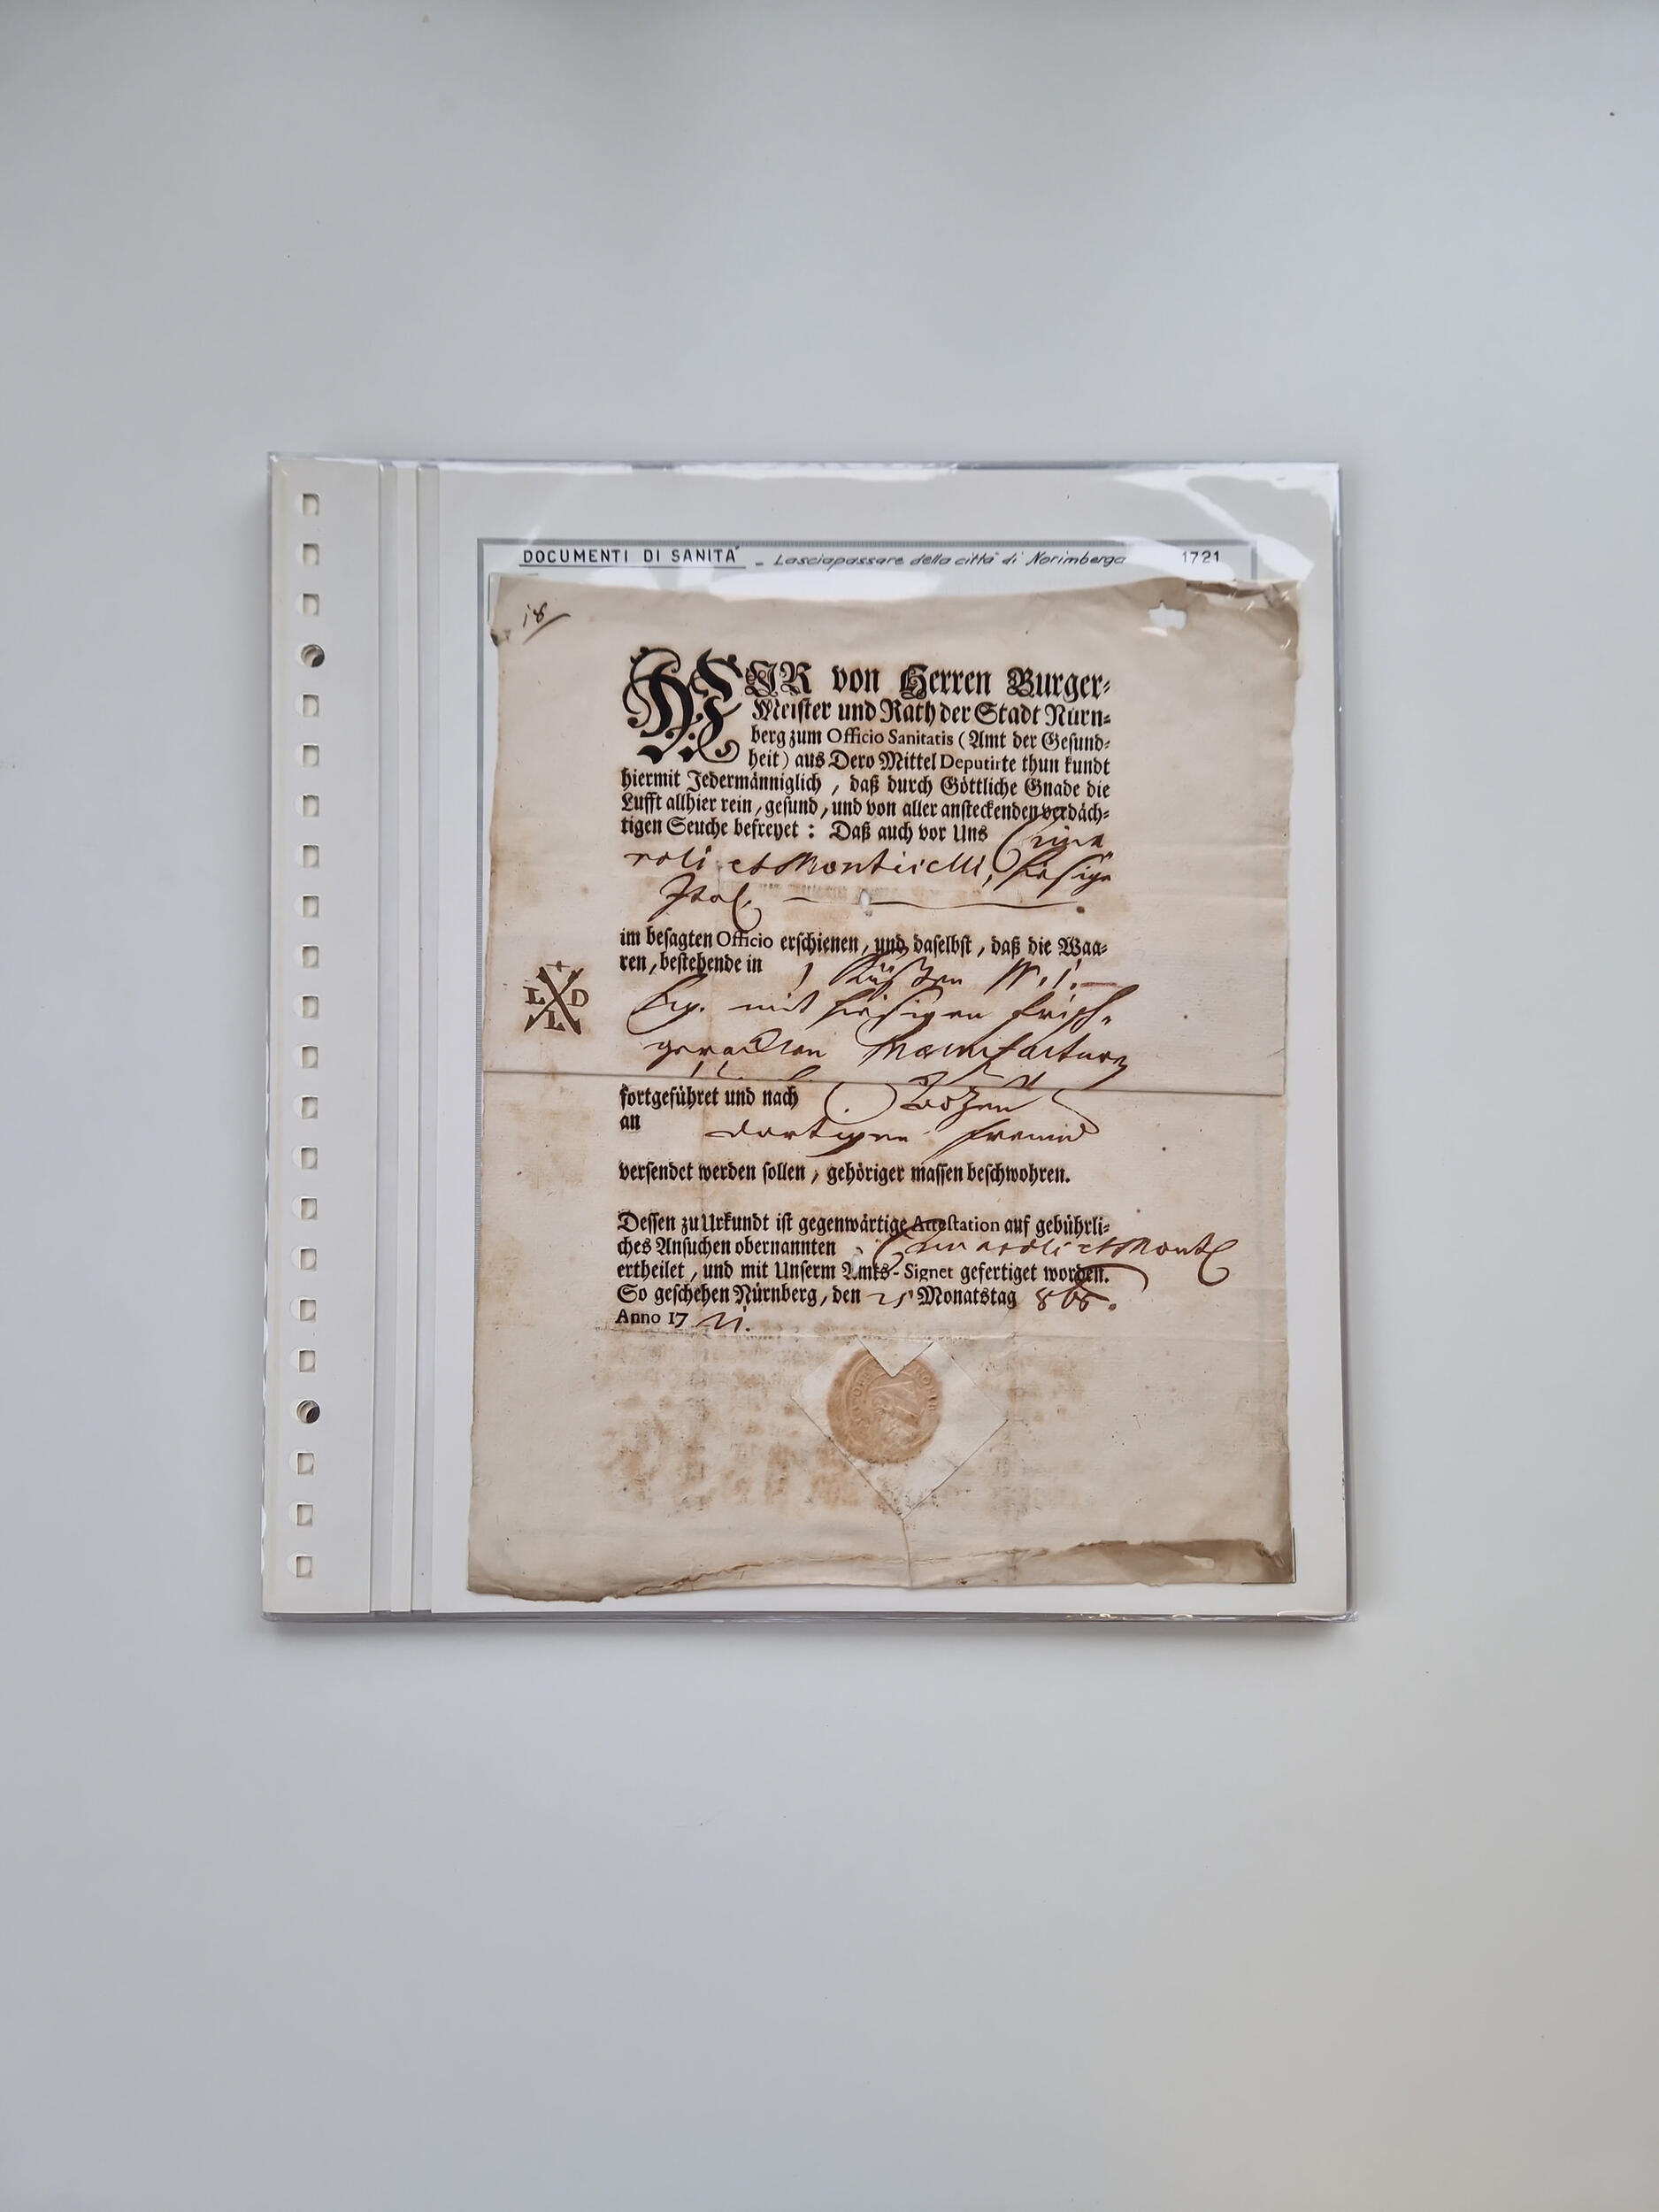 DOCUMENTI DI SANITA' - Lasciapassare della città di Norimberga 1721
18
WIR von Herren Burger-
Meister und Rath der Stadt Nürn-
berg zum Officio Sanitatis (Amt der Gesund-
heit) aus Dero Mittel Deputirte thun kundt
hiermit Jedermänniglich, daß durch Göttliche Gnade die
Lufft allhier rein, gesund, und von aller ansteckenden verdäch-
tigen Seuche befreyet: Daß auch vor Uns
roli et Monticelli, hiesige
im besagten Officio erschienen, und daselbst, daß die Waa-
ren, bestehende in 1 N. 1.
L D
L
mit hiesigen frisch-
Manufacturn
fortgeführet und nach Bozen
an dortigen Freund
versendet werden sollen, gehöriger massen beschwohren.
Dessen zu Urkundt ist gegenwärtige Attestation auf gebührli-
ches Ansuchen obernannten et Mont
ertheilet, und mit Unserm Amts-Signet gefertiget worden.
So geschehen Nürnberg, den Monatstag 8br.
Anno 17 21.